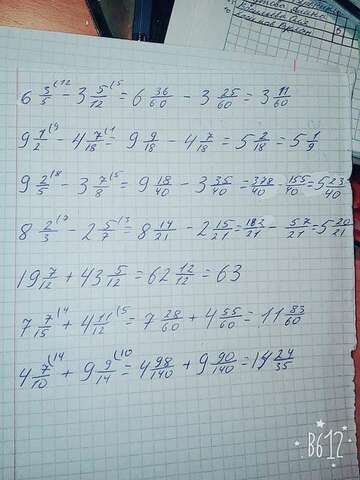 6 3/5 (12 - 3 5/12 (5 = 6 36/60 - 3 25/60 = 3 11/60
9 1/2 (9 - 4 7/18 (1 = 9 9/18 - 4 7/18 = 5 2/18 = 5 1/9
9 2/5 (8 - 3 7/8 (5 = 9 18/40 - 3 35/40 = 378/40 - 155/40 = 5 23/40
8 2/3 (7 - 2 5/7 (3 = 8 14/21 - 2 15/21 = 182/21 - 57/21 = 5 20/21
19 7/12 + 43 5/12 = 62 12/12 = 63
7 7/15 (4 + 4 11/12 (5 = 7 28/60 + 4 55/60 = 11 83/60
4 7/10 (14 + 9 9/14 (10 = 4 98/140 + 9 90/140 = 14 24/35
B612